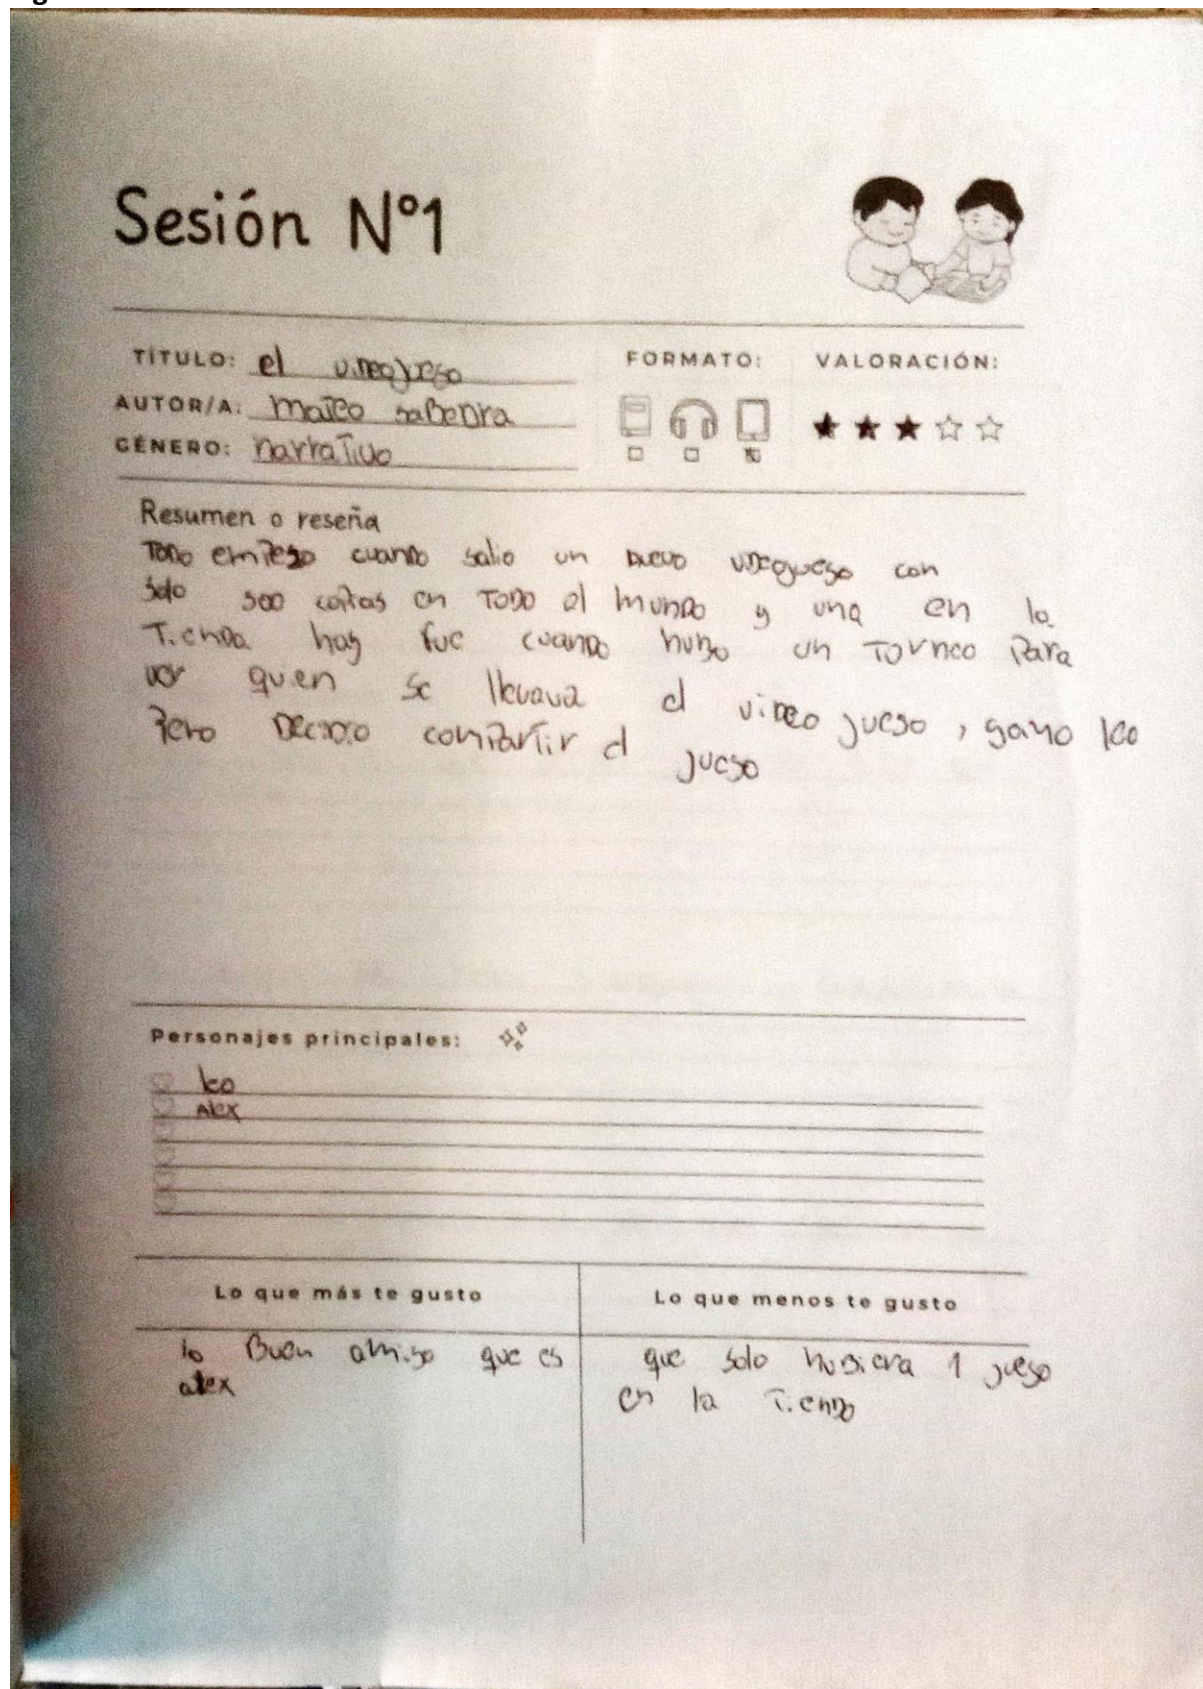 Sesión N°1
TÍTULO: el videojuego
FORMATO:
VALORACIÓN:
AUTOR/A: mateo saBeDra
GÉNERO: narrativo
Resumen o reseña
ToDo empeso cuanDo salio un nuevo videojuego con
solo 500 copias en ToDo el munDo y una en la
TienDa hay fue cuanDo hubo un Torneo Para
ver quien se llevava el viDeo juego, gano leo
Pero DeciDio comPartir el juego
Personajes principales:
leo
Alex
Lo que más te gusto
Lo que menos te gusto
lo Buen amigo que es
alex
que solo huBiera 1 juego
en la TienDa